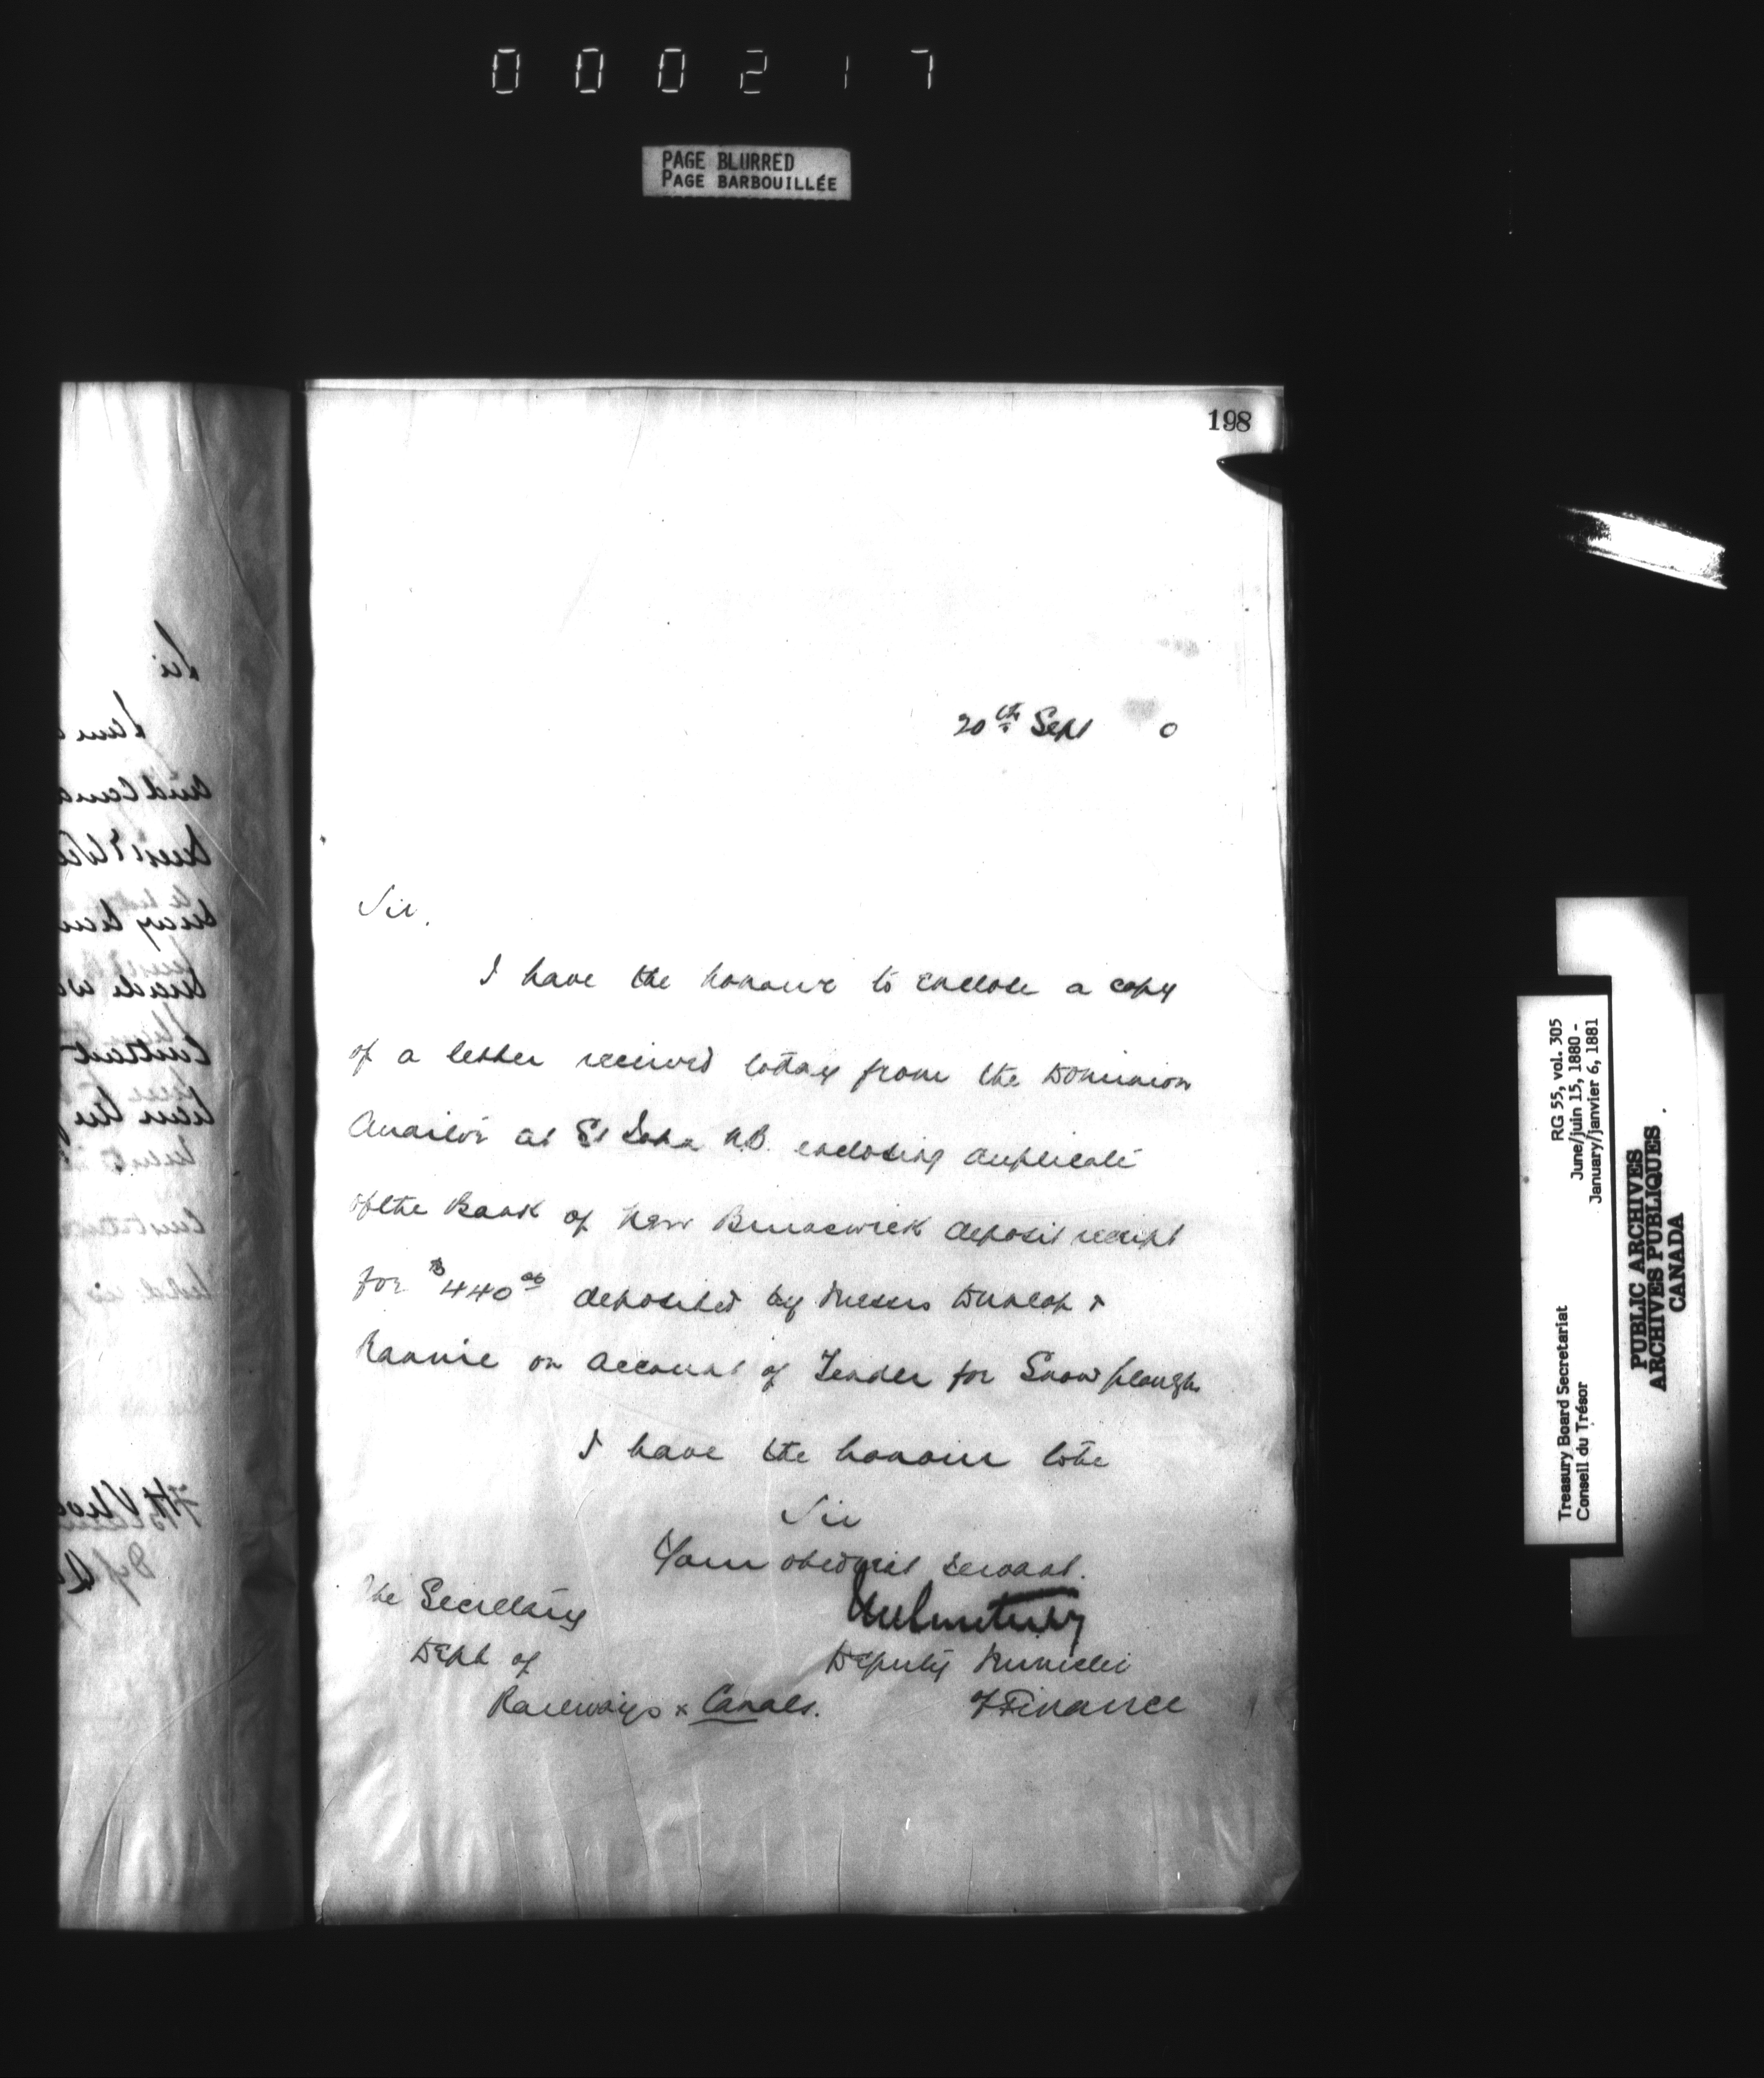 000217
PAGE BLURRED
PAGE BARBOUILLÉE
198
20th Sept 0
Sir.
I have the honour to enclose a copy
of a letter received today from the Dominion
Auditor at St John N.B. enclosing duplicate
of the Bank of New Brunswick deposit receipt
for $440.00 deposited by Messrs Dunlop &
Rannie on account of Tender for Snow plough
I have the honour to be
Sir
Your obedient servant.
Deputy Minister
of Finance
The Secretary
Dept of
Railways & Canals.
RG 55, vol. 305
June/juin 15, 1880 -
January/janvier 6, 1881
Treasury Board Secretariat
Conseil du Trésor
PUBLIC ARCHIVES
ARCHIVES PUBLIQUES
CANADA